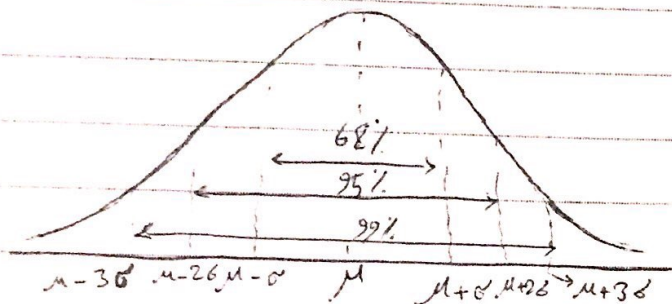 68%
95%
99%
μ-3σ μ-2σ μ-σ μ μ+σ μ+2σ →μ+3σ